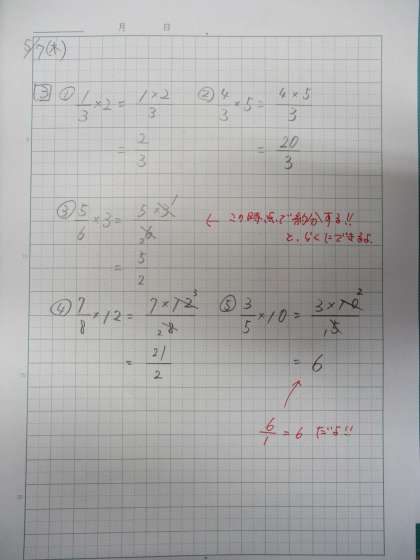 月 日
5/7(木)
3 ① 1/3 × 2 = 1×2/3 ② 4/3 × 5 = 4×5/3
= 2/3 = 20/3
③ 5/6 × 3 = 5×3 1/2 6 ← この時点で約分する!!
と、らくにできるよ
= 5/2
④ 7/8 × 12 = 7×12 3/2 8 ⑤ 3/5 × 10 = 3×10 2/1 5
= 21/2 = 6
6/1 = 6 だよ!!